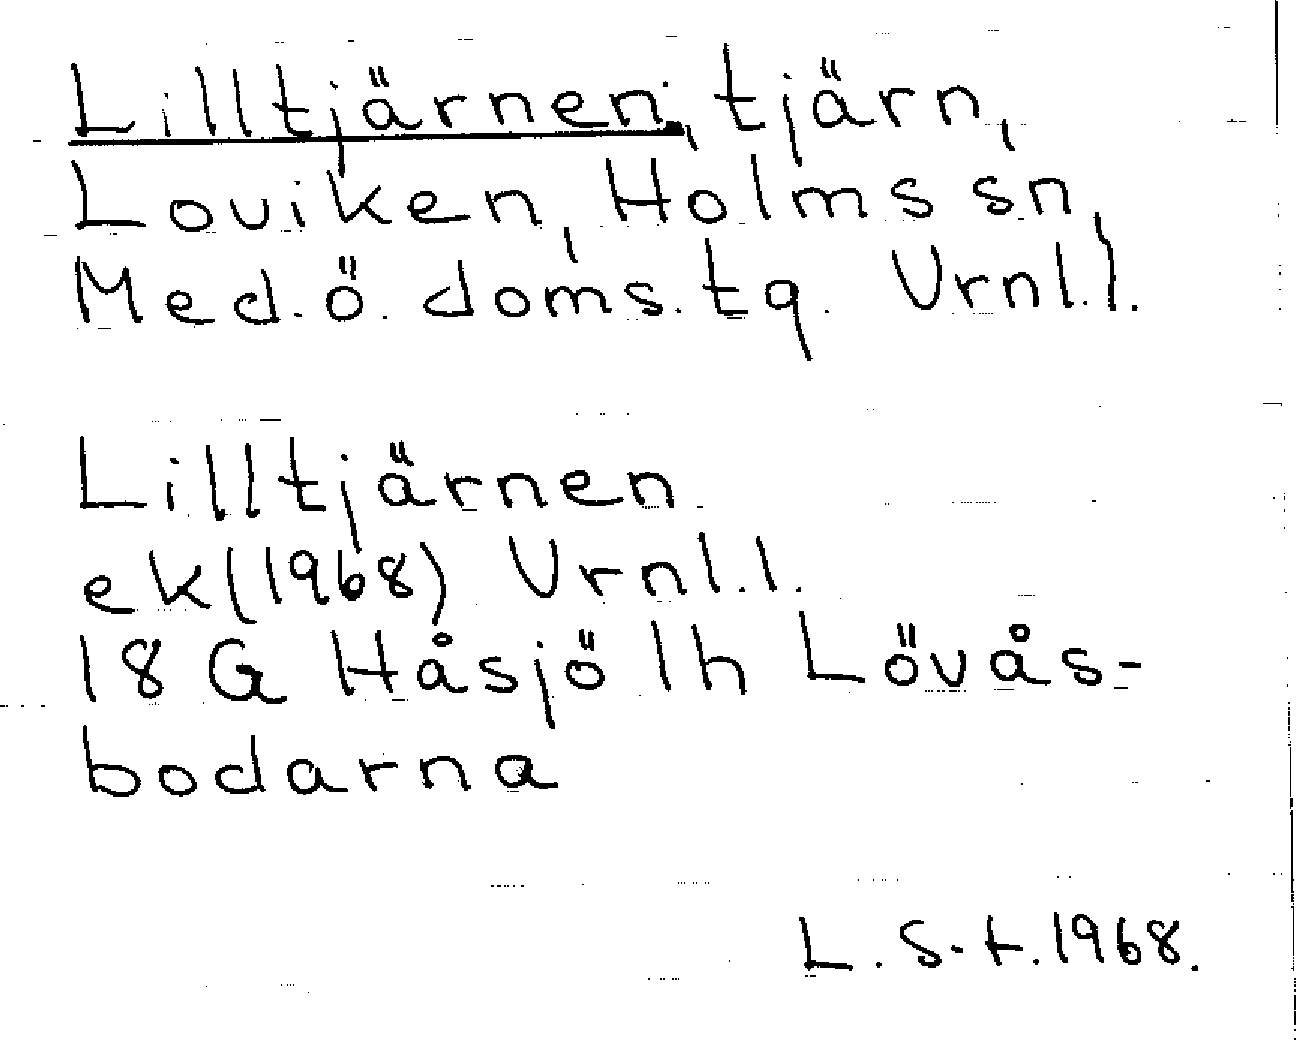 Lilltjärnen, tjärn,
Loviken, Holms sn,
Med.ö. doms.tg. Vrnl.l.
Lilltjärnen
ek(1968) Vrnl.l.
18 G Håsjö 1h Lövås-
bodarna
L.S-t.1968.